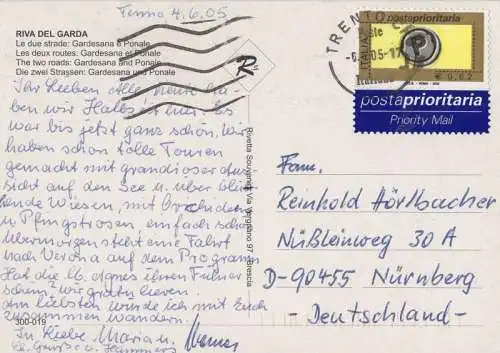 Tenno 4.6.05
RIVA DEL GARDA
Le due strade: Gardesana e Ponale
Les deux routes: Gardesana et Ponale
The two roads: Gardesana and Ponale
Die zwei Strassen: Gardesana und Ponale
Ihr Lieben Alle, heute ha-
ben wir Halbzeit hier. Es
war bis jetzt ganz schön, wir
haben schon tolle Touren
gemacht mit grandioser Aus-
sicht auf den See u. über blü-
hende Wiesen, mit Orchideen
u. Pfingstrosen, einfach schön.
Übermorgen steht eine Fahrt
nach Verona auf dem Programm
Hat die Agnes ihren Führer-
schein? wir gratulieren.
Am liebsten würde ich mit Euch
zusammen wandern.
In Liebe Maria u.
300-019
Rivetta Souvenirs Via Vergnano 97 - Brescia
TRENTO
05-17
postaprioritaria
Italia
€ 0,62
postaprioritaria
Priority Mail
Fam.
Reinhold Hörlbacher
Nüßleinweg 30 A
D-90455 Nürnberg
- Deutschland -